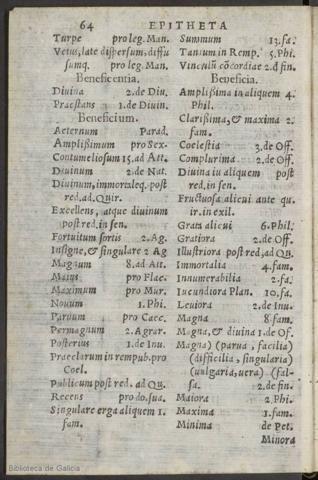 64 EPITHETA
Turpe pro leg. Man.
Vetus, late dispersum, diffu
sumq. pro leg. Man.
Beneficentia.
Diuina 2. de Diu.
Praestans 1. de Diuin.
Beneficium.
Aeternum Parad.
Amplißimum pro Sex.
Contumeliosum 15. ad Att.
Diuinum 2. de Nat.
Diuinum, immortaleq. post
red. ad. Quir.
Excellens, atque diuinum
post red. in sen.
Fortuitum fortis 2. Ag.
Insigne, & singulare 2 Ag
Magnum 8. ad Att.
Maius pro Flac.
Maximum pro Mur.
Nouum 1. Phi.
Paruum pro Caec.
Permagnum 2. Agrar.
Posterius 1. de Inu.
Praeclarum in rempub. pro
Coel.
Publicum post red. ad Qu.
Recens pro do. sua.
Singulare erga aliquem 1.
fam.
Summum 13. fa.
Tantum in Remp. 5. Phi.
Vinculũ cõcordiae 2. d fin.
Beneficia.
Amplißima in aliquem 4.
Phil.
Clarißima, & maxima 2.
fam.
Coelestia 3. de Off.
Complurima 2. de Off.
Diuina iu aliquem post
red. in sen.
Fructuosa alicui ante qu.
ir. in exil.
Grata alicui 6. Phil.
Gratiora 2. de Off.
Illustriora post red, ad Qu.
Immortalia 4. fam.
Innumerabilia 2. fa.
Iucundiora Plan. 10. fa.
Leuiora 2. de Inu.
Magna 8. fam.
Magna, & diuina 1. de Of.
Magna) (parua, facilia)
(difficilia, singularia)
(uulgaria, uera) (fal-
sa. 2. de fin.
Maiora 2. Phi.
Maxima 1. fam.
Minima de Pet.
Minora
Biblioteca de Galicia